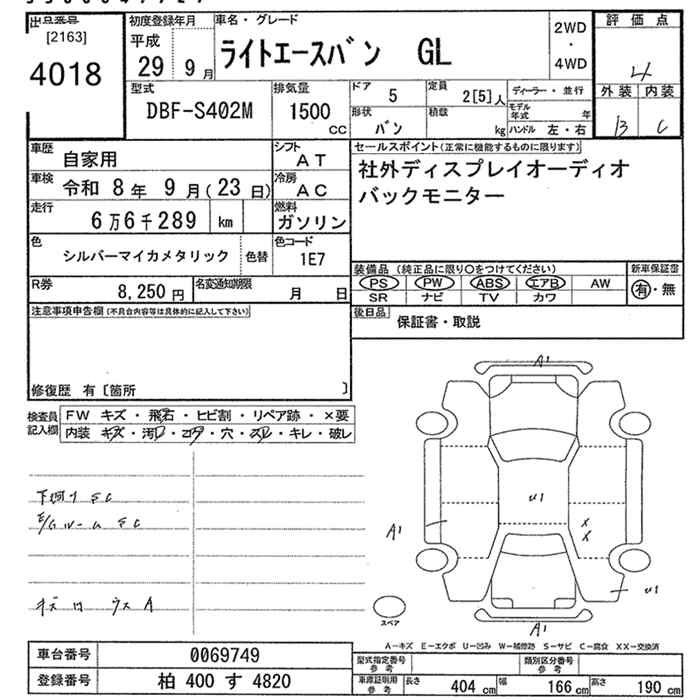 出品番号
[2163]
4018
初度登録年月
平成
29 9月
車名・グレード
ライトエースバン GL
2WD
・
4WD
評価点
4
外装 内装
B C
型式
DBF-S402M
排気量
1500
CC
ドア
5
定員
2[5]人
ディーラー・並行
形状
バン
積載
kg
モデル年式 年
ハンドル 左・右
車歴
自家用
シフト
AT
セールスポイント(正常に機能するものに限ります)
社外ディスプレイオーディオ
バックモニター
車検
令和 8年 9月(23日)
冷房
AC
走行
6万6千289 km
燃料
ガソリン
色
シルバーマイカメタリック
色替
色コード
1E7
装備品 (純正品に限り○をつけてください)
新車保証書
PS PW ABS エアB AW
有・無
SR ナビ TV カワ
R券
8,250 円
名変通知期限
月 日
後日品
保証書・取説
注意事項申告欄(不具合内容等は具体的に記入して下さい)
修復歴 有〔箇所 〕
検査員記入欄
FW キズ・飛石・ヒビ割・リペア跡・×要
内装 キズ・汚レ・コゲ・穴・スレ・キレ・破レ
A1
U1
A1
X
X
U1
A1
スペア
A-キズ E-エクボ U-凹み W-補修跡 S-サビ C-腐食 XX-交換済
車台番号
0069749
型式指定番号
参考
類別区分番号
参考
登録番号
柏 400 す 4820
車庫証明用
参考
長さ 404 cm 幅 166 cm 高さ 190 cm